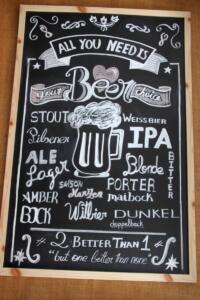 ALL YOU NEED IS
your Beer choice
STOUT WEISSBIER
Pilsener IPA
ALE Blonde
Lager BITTER
SAISON PORTER
AMBER Harzen maibock
BOCK Witbier DUNKEL
doppelbock
2 BETTER THAN 1
"but one better than none"